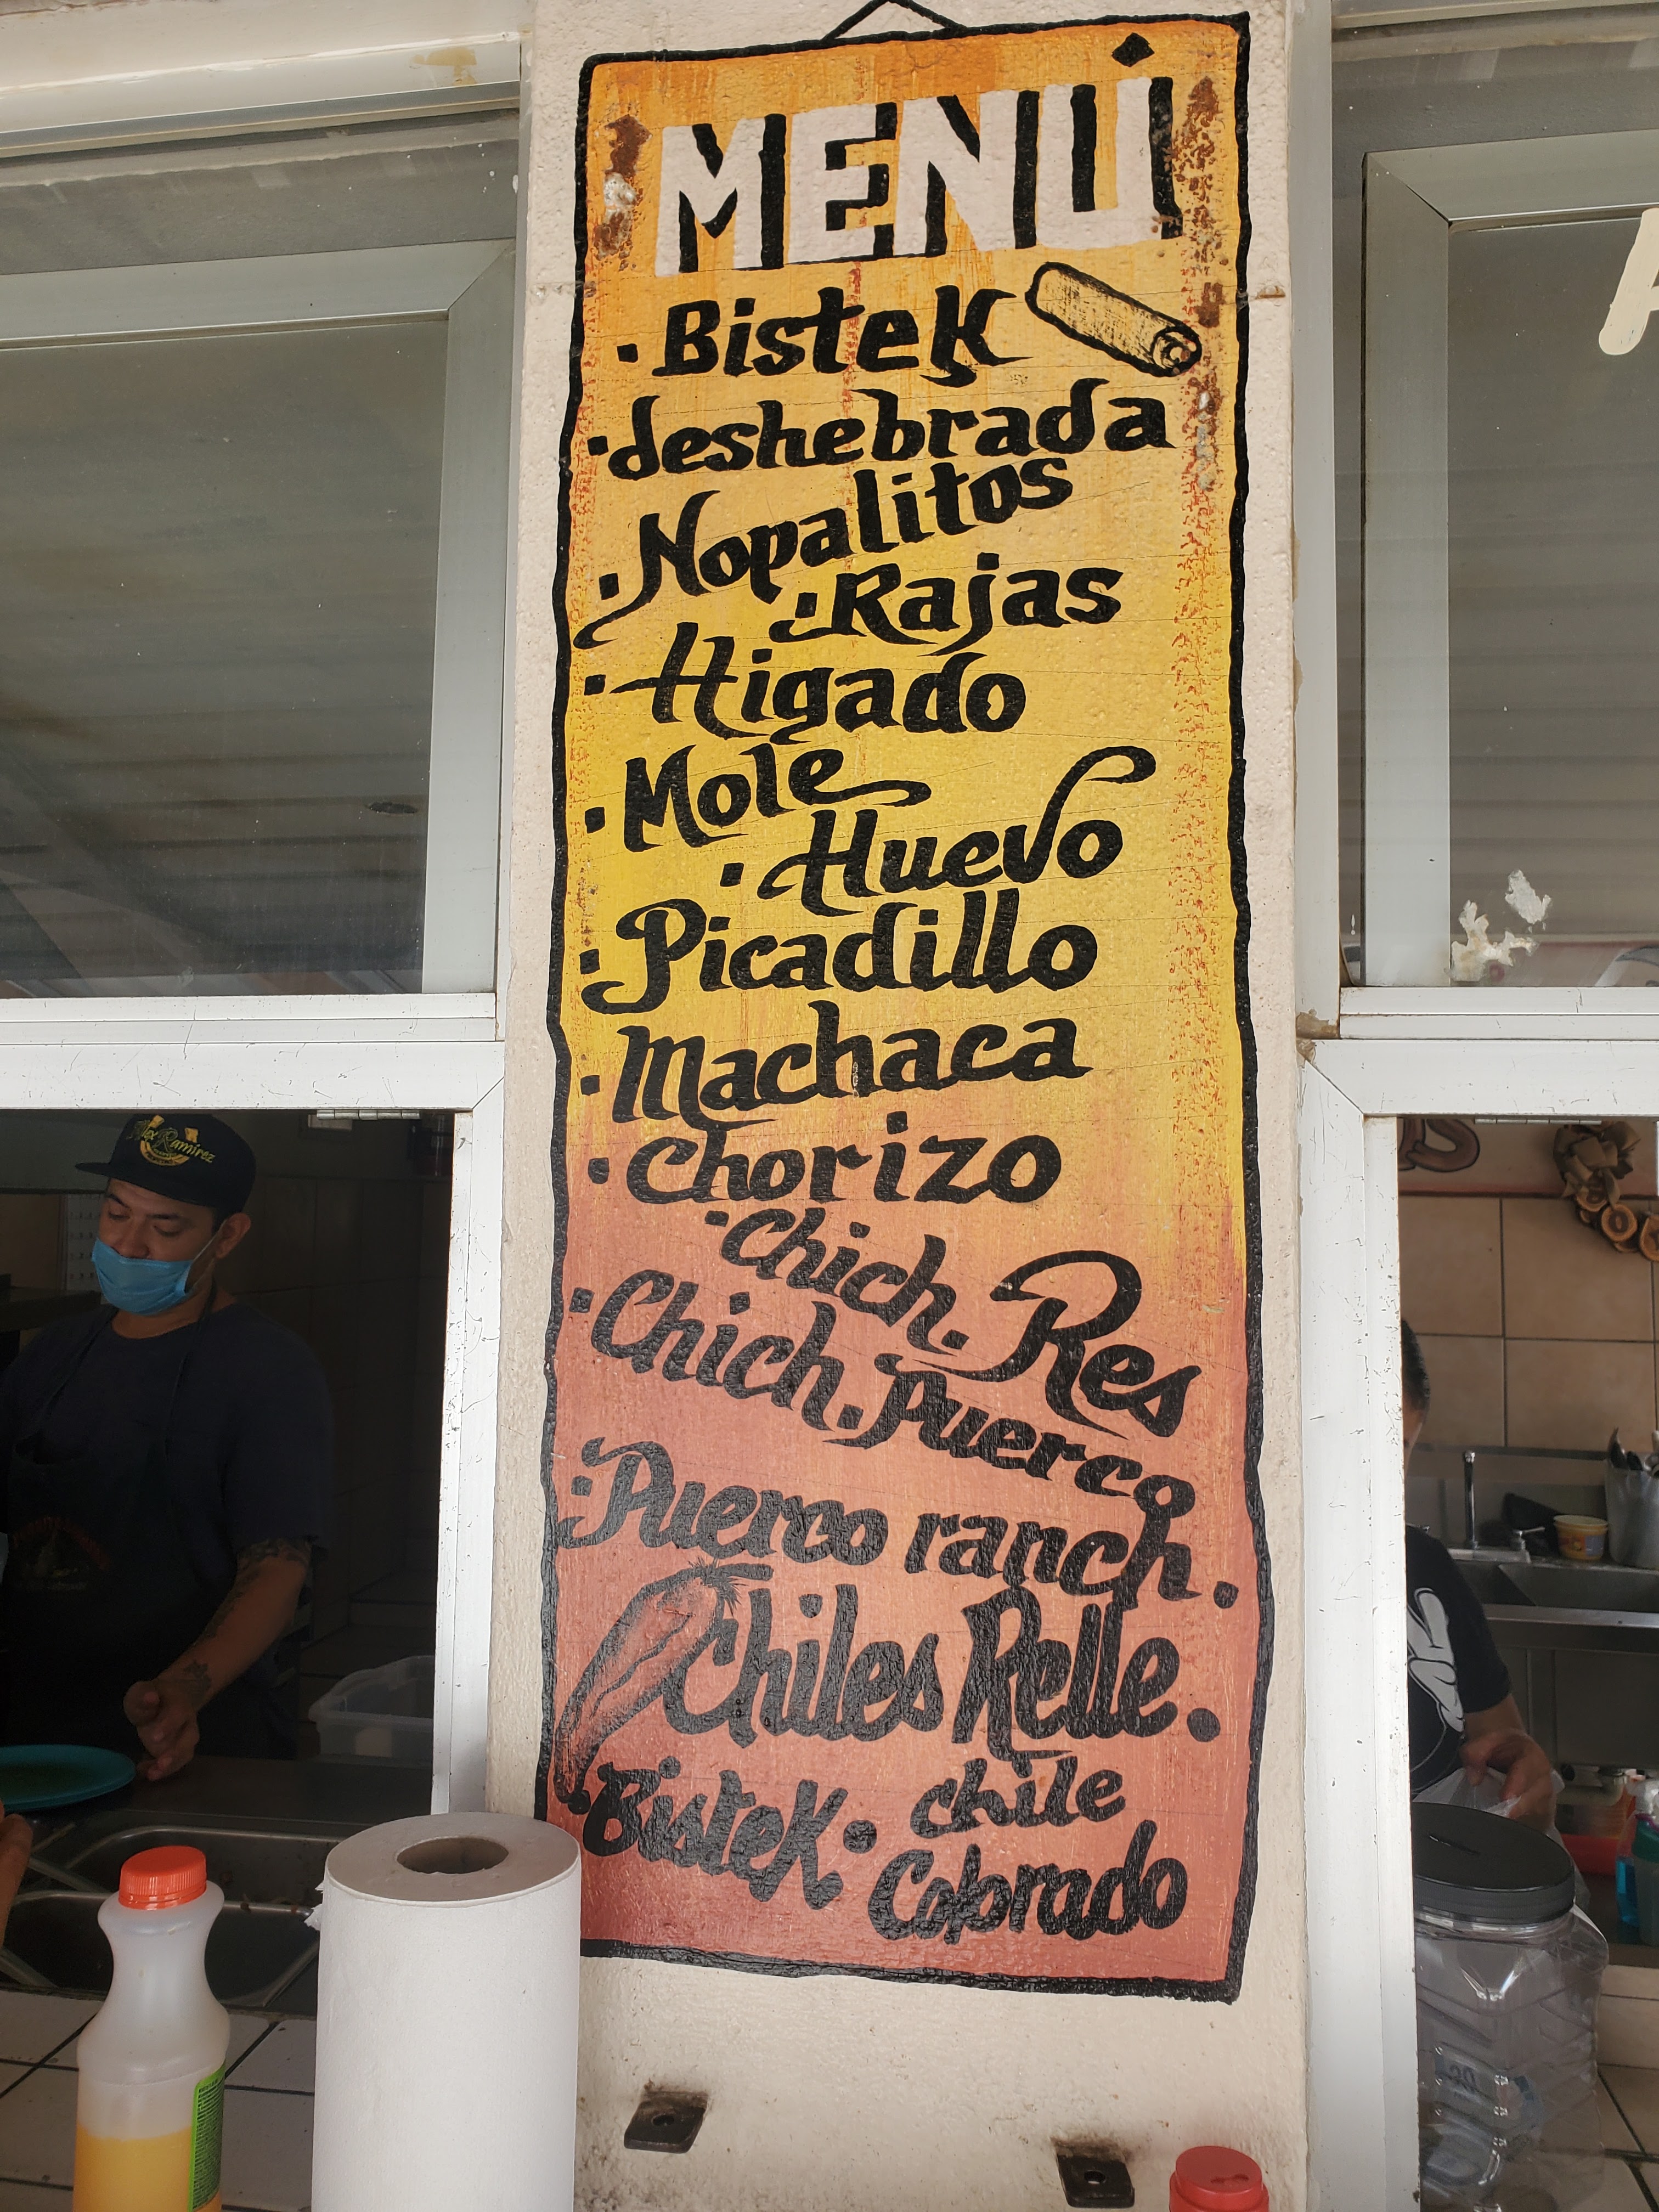 MENÚ
· Bistek
· deshebrada
· Nopalitos
· Rajas
· Higado
· Mole
· Huevo
· Picadillo
· Machaca
· Chorizo
· Chich. Res
· Chich. Puerco
· Puerco ranch.
Chiles Relle.
· Bistek. chile
Colorado
Alex Ramirez